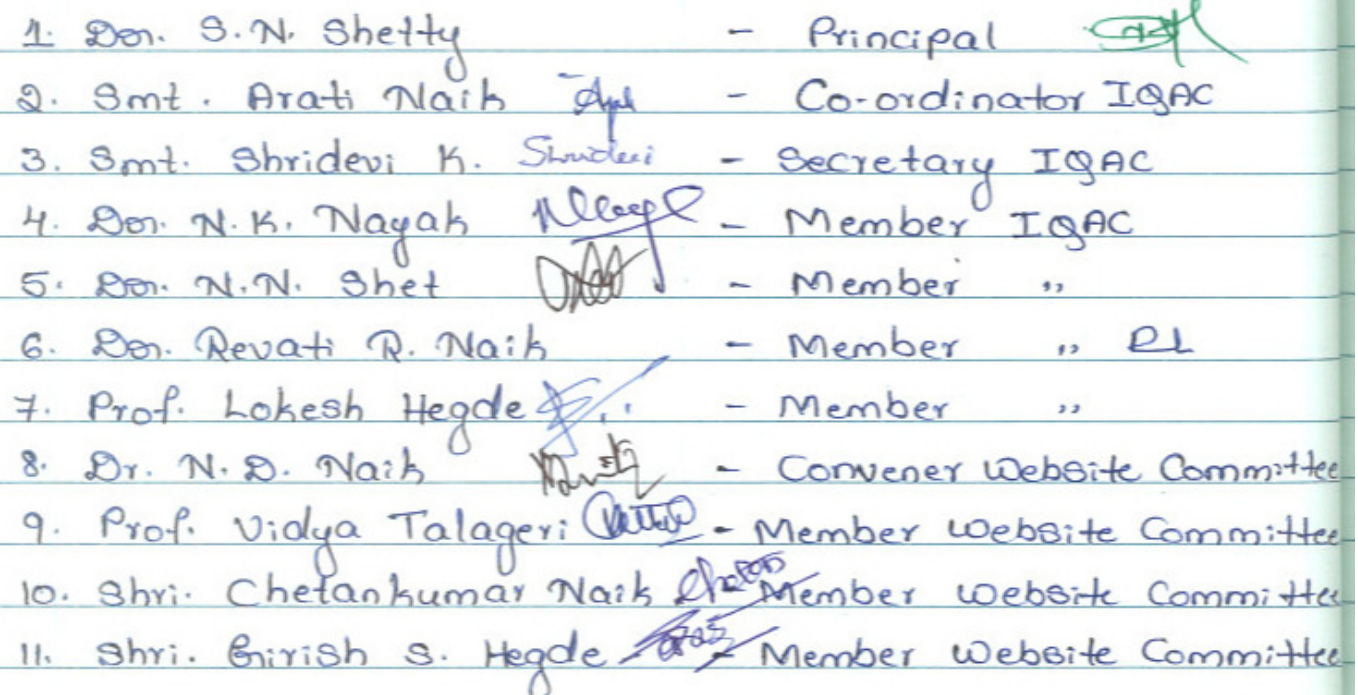 1. Dr. S.N. Shetty - Principal
2. Smt. Arati Naik - Co-ordinator IQAC
3. Smt. Shridevi K. Shridevi - Secretary IQAC
4. Dr. N.K. Nayak - Member IQAC
5. Dr. N.N. Shet - Member ,,
6. Dr. Revati R. Naik - Member ,,
7. Prof. Lokesh Hegde - Member ,,
8. Dr. N.D. Naik - Convener Website Committee
9. Prof. Vidya Talageri - Member Website Committee
10. Shri. Chetankumar Naik - Member Website Committee
11. Shri. Girish S. Hegde - Member Website Committee